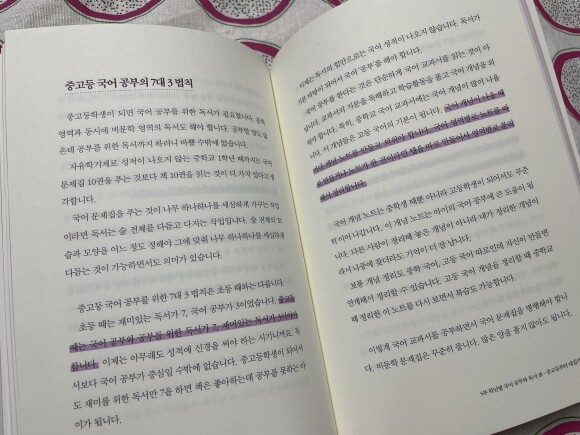 중고등 국어 공부의 7대 3 법칙
중고등학생이 되면 국어 공부를 위한 독서가 필요합니다. 문학
영역과 동시에 비문학 영역의 독서도 해야 합니다. 공부할 양도 많
은데 공부를 위한 독서까지 하려니 바쁠 수밖에 없습니다.
자유학기제로 성적이 나오지 않는 중학교 1학년 때까지는 국어
문제집 10권을 푸는 것보다 책 10권을 읽는 것이 더 가치 있다고 생
각합니다.
국어 문제집을 푸는 것이 나무 하나하나를 세심하게 가꾸는 작업
이라면 독서는 숲 전체를 다듬고 다지는 작업입니다. 숲 전체의 모
습과 모양을 어느 정도 정해야 그에 맞춰 나무 하나하나를 세심하게
다듬는 것이 가능하면서도 의미가 있습니다.
중고등 국어 공부를 위한 7대 3 법칙은 초등 때와는 다릅니다.
초등 때는 재미있는 독서가 7, 국어 공부가 3이었습니다. 중고등
때는 국어 공부와 공부를 위한 독서가 7, 재미있는 독서가 3이어야
합니다. 이제는 아무래도 성적에 신경을 써야 하는 시기니까요. 독
서보다 국어 공부가 중심일 수밖에 없습니다. 중고등학생이 되어서
도 재미를 위한 독서만 7을 하면 책은 좋아하는데 공부를 못하는 아
이가 됩니다.
이제는 독서의 힘만으로는 국어 성적이 나오지 않습니다. 독서가
기본 바탕이 되어서 국어 '공부'를 해야 합니다.
국어 공부를 한다는 것은 단순하게 국어 교과서를 읽는 것이 아
닙니다. 교과서의 지문을 독해하고 학습활동을 풀고 국어 개념을 외
워야 합니다. 특히, 중학교 국어 교과서에는 국어 개념이 많이 나옵
니다. 이 개념들은 고등 국어의 기본이 됩니다. 국어 개념이 나올 때
마다 개념 노트를 만들고 외워야 합니다. 국어 영역별로 노트를 따
로 만들거나 노트가 한 권이라면 탭을 따로 만들어서 영역별로 분류
해서 정리합니다.
국어 개념 노트는 중학생 때뿐 아니라 고등학생이 되어서도 꾸준
히 이어 나갑니다. 이 개념 노트는 아이의 국어 공부에 큰 도움이 됩
니다. 다른 사람이 정리해 놓은 개념이 아니라 내가 정리한 개념이
라서 나중에 봤더라도 기억이 더 잘 납니다.
보통 개념 정리도 중학 국어, 고등 국어 따로인데 자신이 만들면
연계해서 정리할 수 있습니다. 고등 국어 개념을 정리할 때 중학교
때 정리한 이 노트를 다시 보면서 복습도 가능합니다.
이렇게 국어 교과서를 공부하면서 국어 문제집을 병행해야 합니
다. 비문학 문제집은 꾸준히 풉니다. 많은 양을 풀지 않아도 됩니다.
5부 학년별 국어 공부와 독서 로